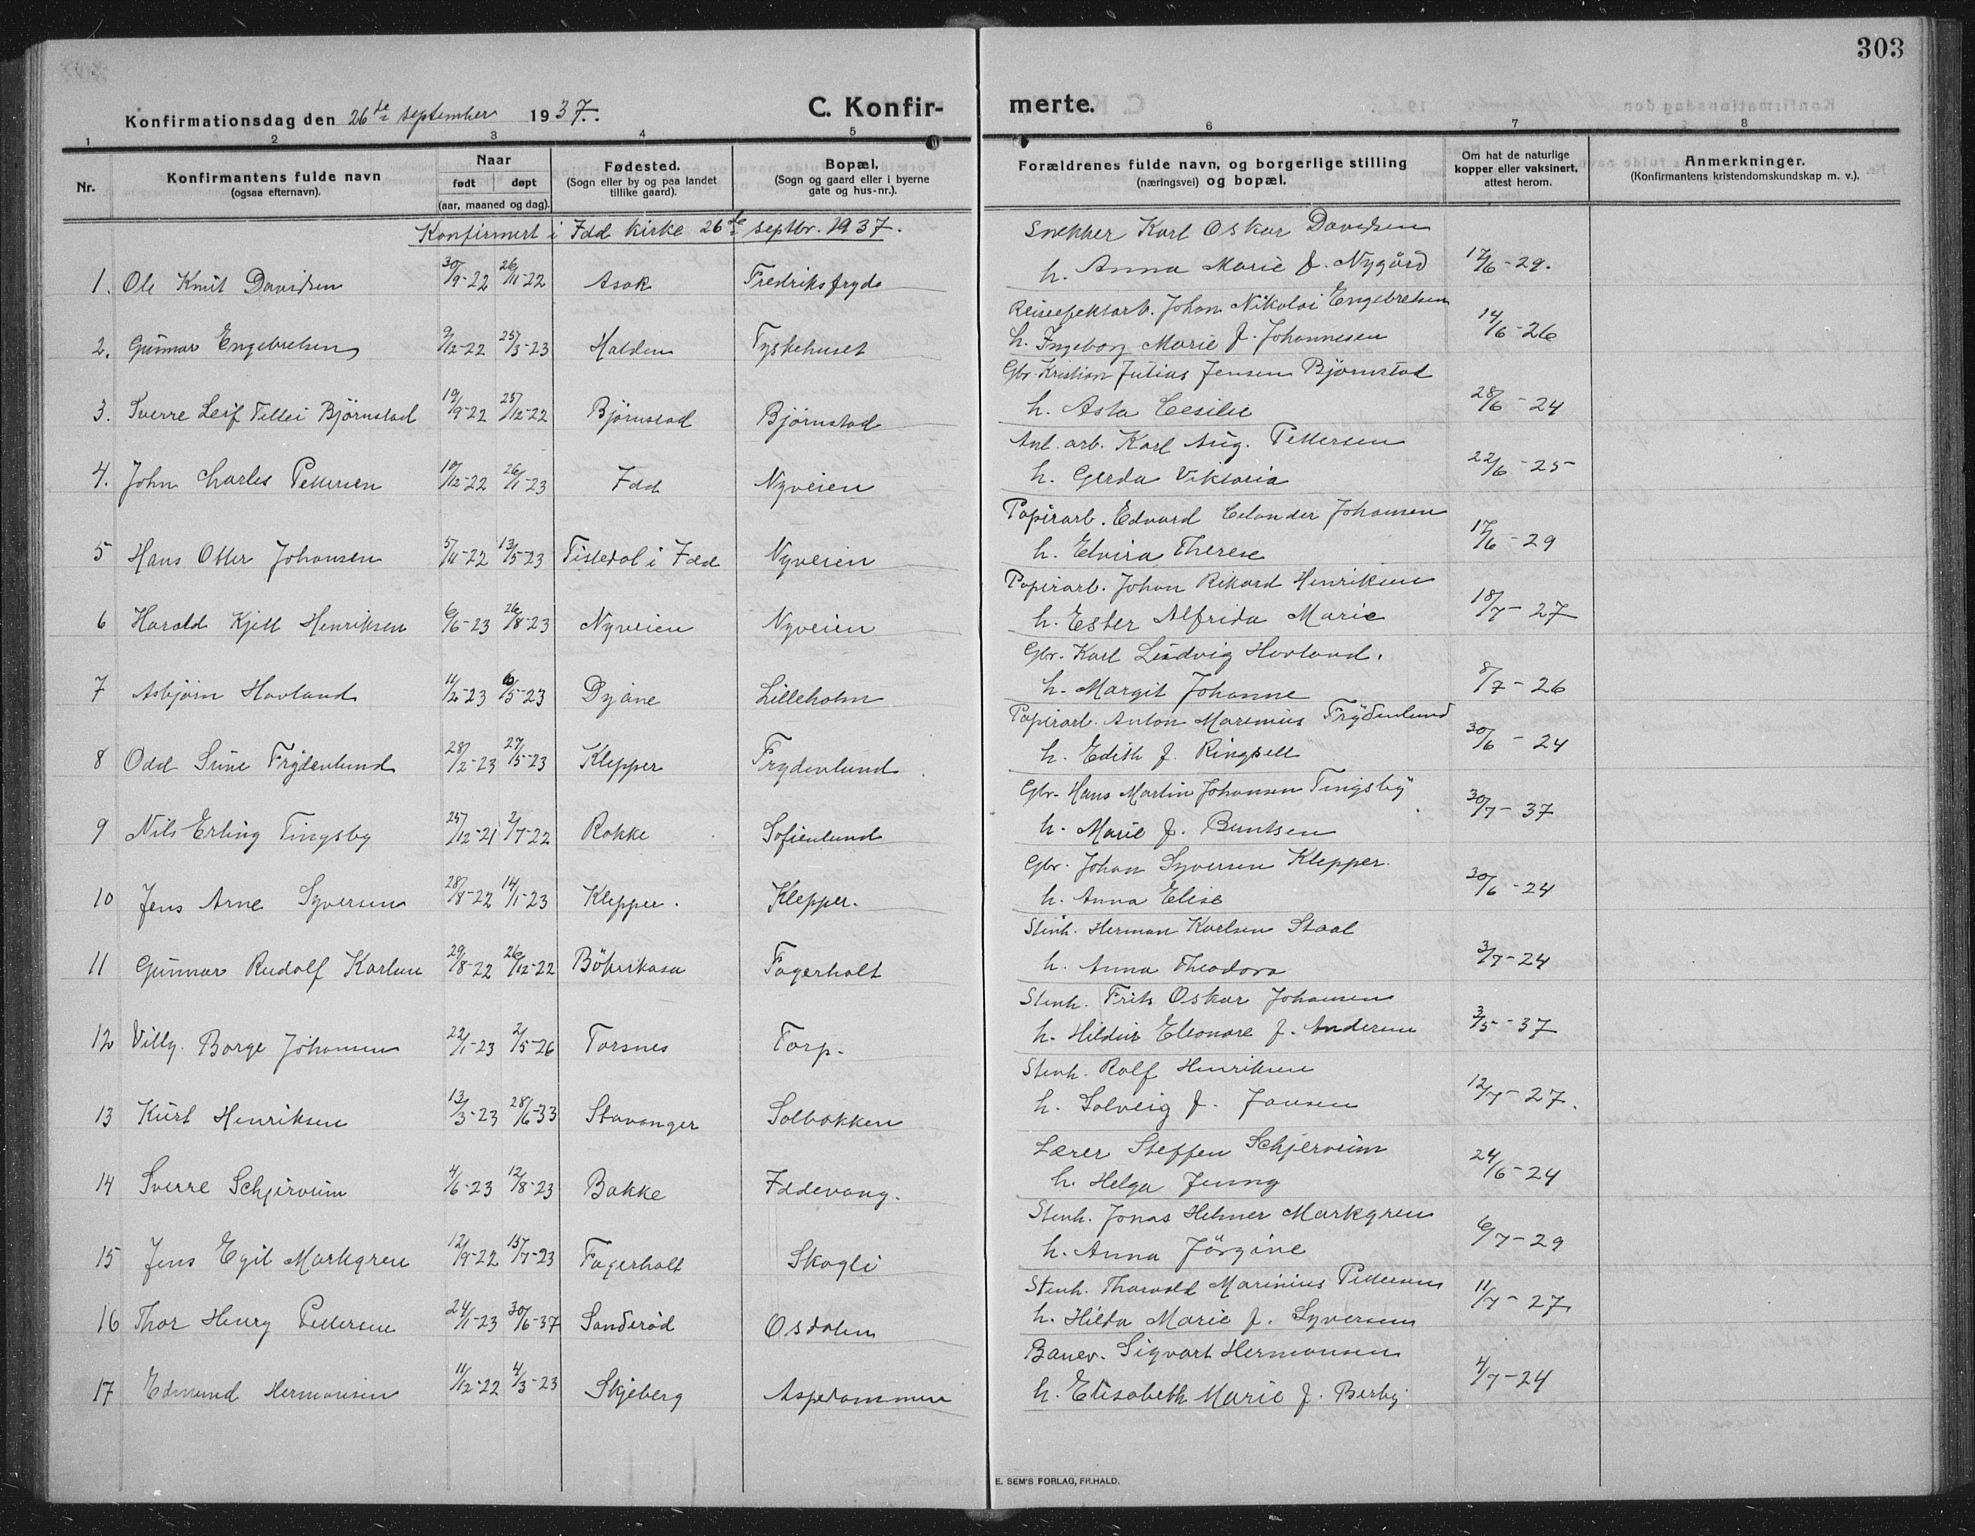 303
Konfirmationsdag den 26de september 1937.
C. Konfir-
merte.
1 2 3 4 5 6 7 8
Nr.
Konfirmantens fulde navn
(ogsaa efternavn).
Naar
født døpt
(aar, maaned og dag).
Fødested.
(Sogn eller by og paa landet
tillike gaard).
Bopæl.
(Sogn og gaard eller i byerne
gate og hus-nr.).
Forældrenes fulde navn, og borgerlige stilling
(næringsvei) og bopæl.
Om hat de naturlige
kopper eller vaksinert,
attest herom.
Anmerkninger.
(Konfirmantens kristendomskundskap m. v.).
Konfirmert i Idd kirke 26de septbr. 1937.
Snekker Karl Oskar Davidsen
1. Ole Knut Davidsen 30/9-22 26/11-22 Asak Fredriksfryd h. Anna Marie f. Nygård 17/6-29.
Johan Nikolai Engebretsen
2. Gunnar Engebretsen 9/12-22 25/3-23 Halden Tyskehuset h. Ingeborg Marie f. Johannesen 14/6-26
Gbr. Kristian Julius Jensen Bjørnstad
3. Sverre Leif Tellei Bjørnstad 19/9-22 25/12-22 Bjørnstad Bjørnstad h. Asta Cesilie 28/6-24
Anl. arb. Karl Aug. Pettersen
4. John Charles Pettersen 10/12-22 26/1-23 Idd Nyveien h. Gerda Viktoria 22/6-25
Papirarb. Edvard Celander Johansen
5 Hans Otter Johansen 5/11-22 13/5-23 Tistedal i Idd Nyveien h. Elvira Therese 17/6-29
Papirarb. Johan Rikard Henriksen
6 Harald Kjell Henriksen 6/6-23 26/8-23 Nyveien Nyveien h. Ester Alfrida Marie 18/7-27
Gbr. Karl Ludvig Hovland.
7 Asbjørn Hovland 11/2-23 6/5-23 Dyåne Lilleholm h. Margit Johanne 8/7-26
Papirarb. Anton Marinius Frydenlund
8 Odd Sune Frydenlund 28/2-23 27/5-23 Klepper Frydenlund h. Edith f. Ringsell 30/6-24
Gbr. Hans Martin Johansen Tingsby
9 Nils Erling Tingsby 25/12-21 2/7-22 Rokke Sofienlund h. Marie f. Buntsen 30/7-37
Gbr. Johan Syversen Klepper.
10 Jens Arne Syversen 28/8-22 14/1-23 Klepper. Klepper. h. Anna Elise 30/6-24
Stenh. Herman Karlsen Staal
11 Gunnar Rudolf Karlsen 29/8-22 26/12-22 Fagerholt h. Anna Theodora 3/7-24
Stenh. Frits Oskar Johansen
12 Villy Borge Johansen 22/1-23 2/5-26 Torsnes Torp. h. Hildur Eleonore f. Andersen 3/5-37
Stenh. Rolf Henriksen
13 Kurt Henriksen 13/3-23 28/6-33 Stavanger Solbakken h. Solveig f. Jansen 12/7-27.
Lærer Steffen Schjerveim
14 Sverre Schjerveim 4/6-23 12/8-23 Bakke Iddevang. h. Helga Jenny 24/6-24
Stenh. Jonas Helmer Markgren
15 Jens Egil Markgren 12/9-22 15/7-23 Fagerholt Skogli h. Anna Jörgine 6/7-29
Stenh. Thorvald Marinius Pettersen
16 Thor Henry Pettersen 24/1-23 30/6-37 Sanderød Osdalen h. Hilda Marie f. Syversen 11/7-27
Banev. Sigvart Hermansen
17 Edmund Hermansen 11/12-22 4/3-23 Skjeberg Aspedammen h. Elisabeth Marie f. Berby 4/7-24
E. SEM'S FORLAG, FR.HALD.